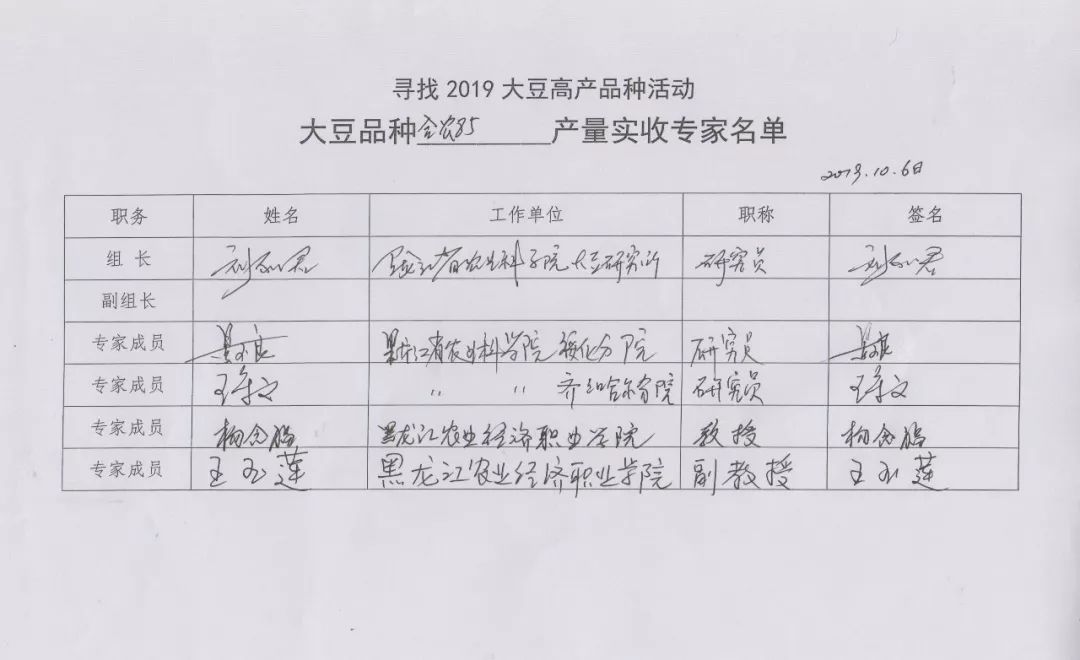 寻找 2019 大豆高产品种活动
大豆品种合农85产量实收专家名单
2019.10.6日
职务 姓名 工作单位 职称 签名
组 长 黑龙江省农业科学院大豆研究所 研究员
副组长
专家成员 黑龙江省农业科学院绥化分院 研究员
专家成员 〃 〃 齐齐哈尔分院 研究员
专家成员 黑龙江农业经济职业学院 教授
专家成员 王玉莲 黑龙江农业经济职业学院 副教授 王玉莲